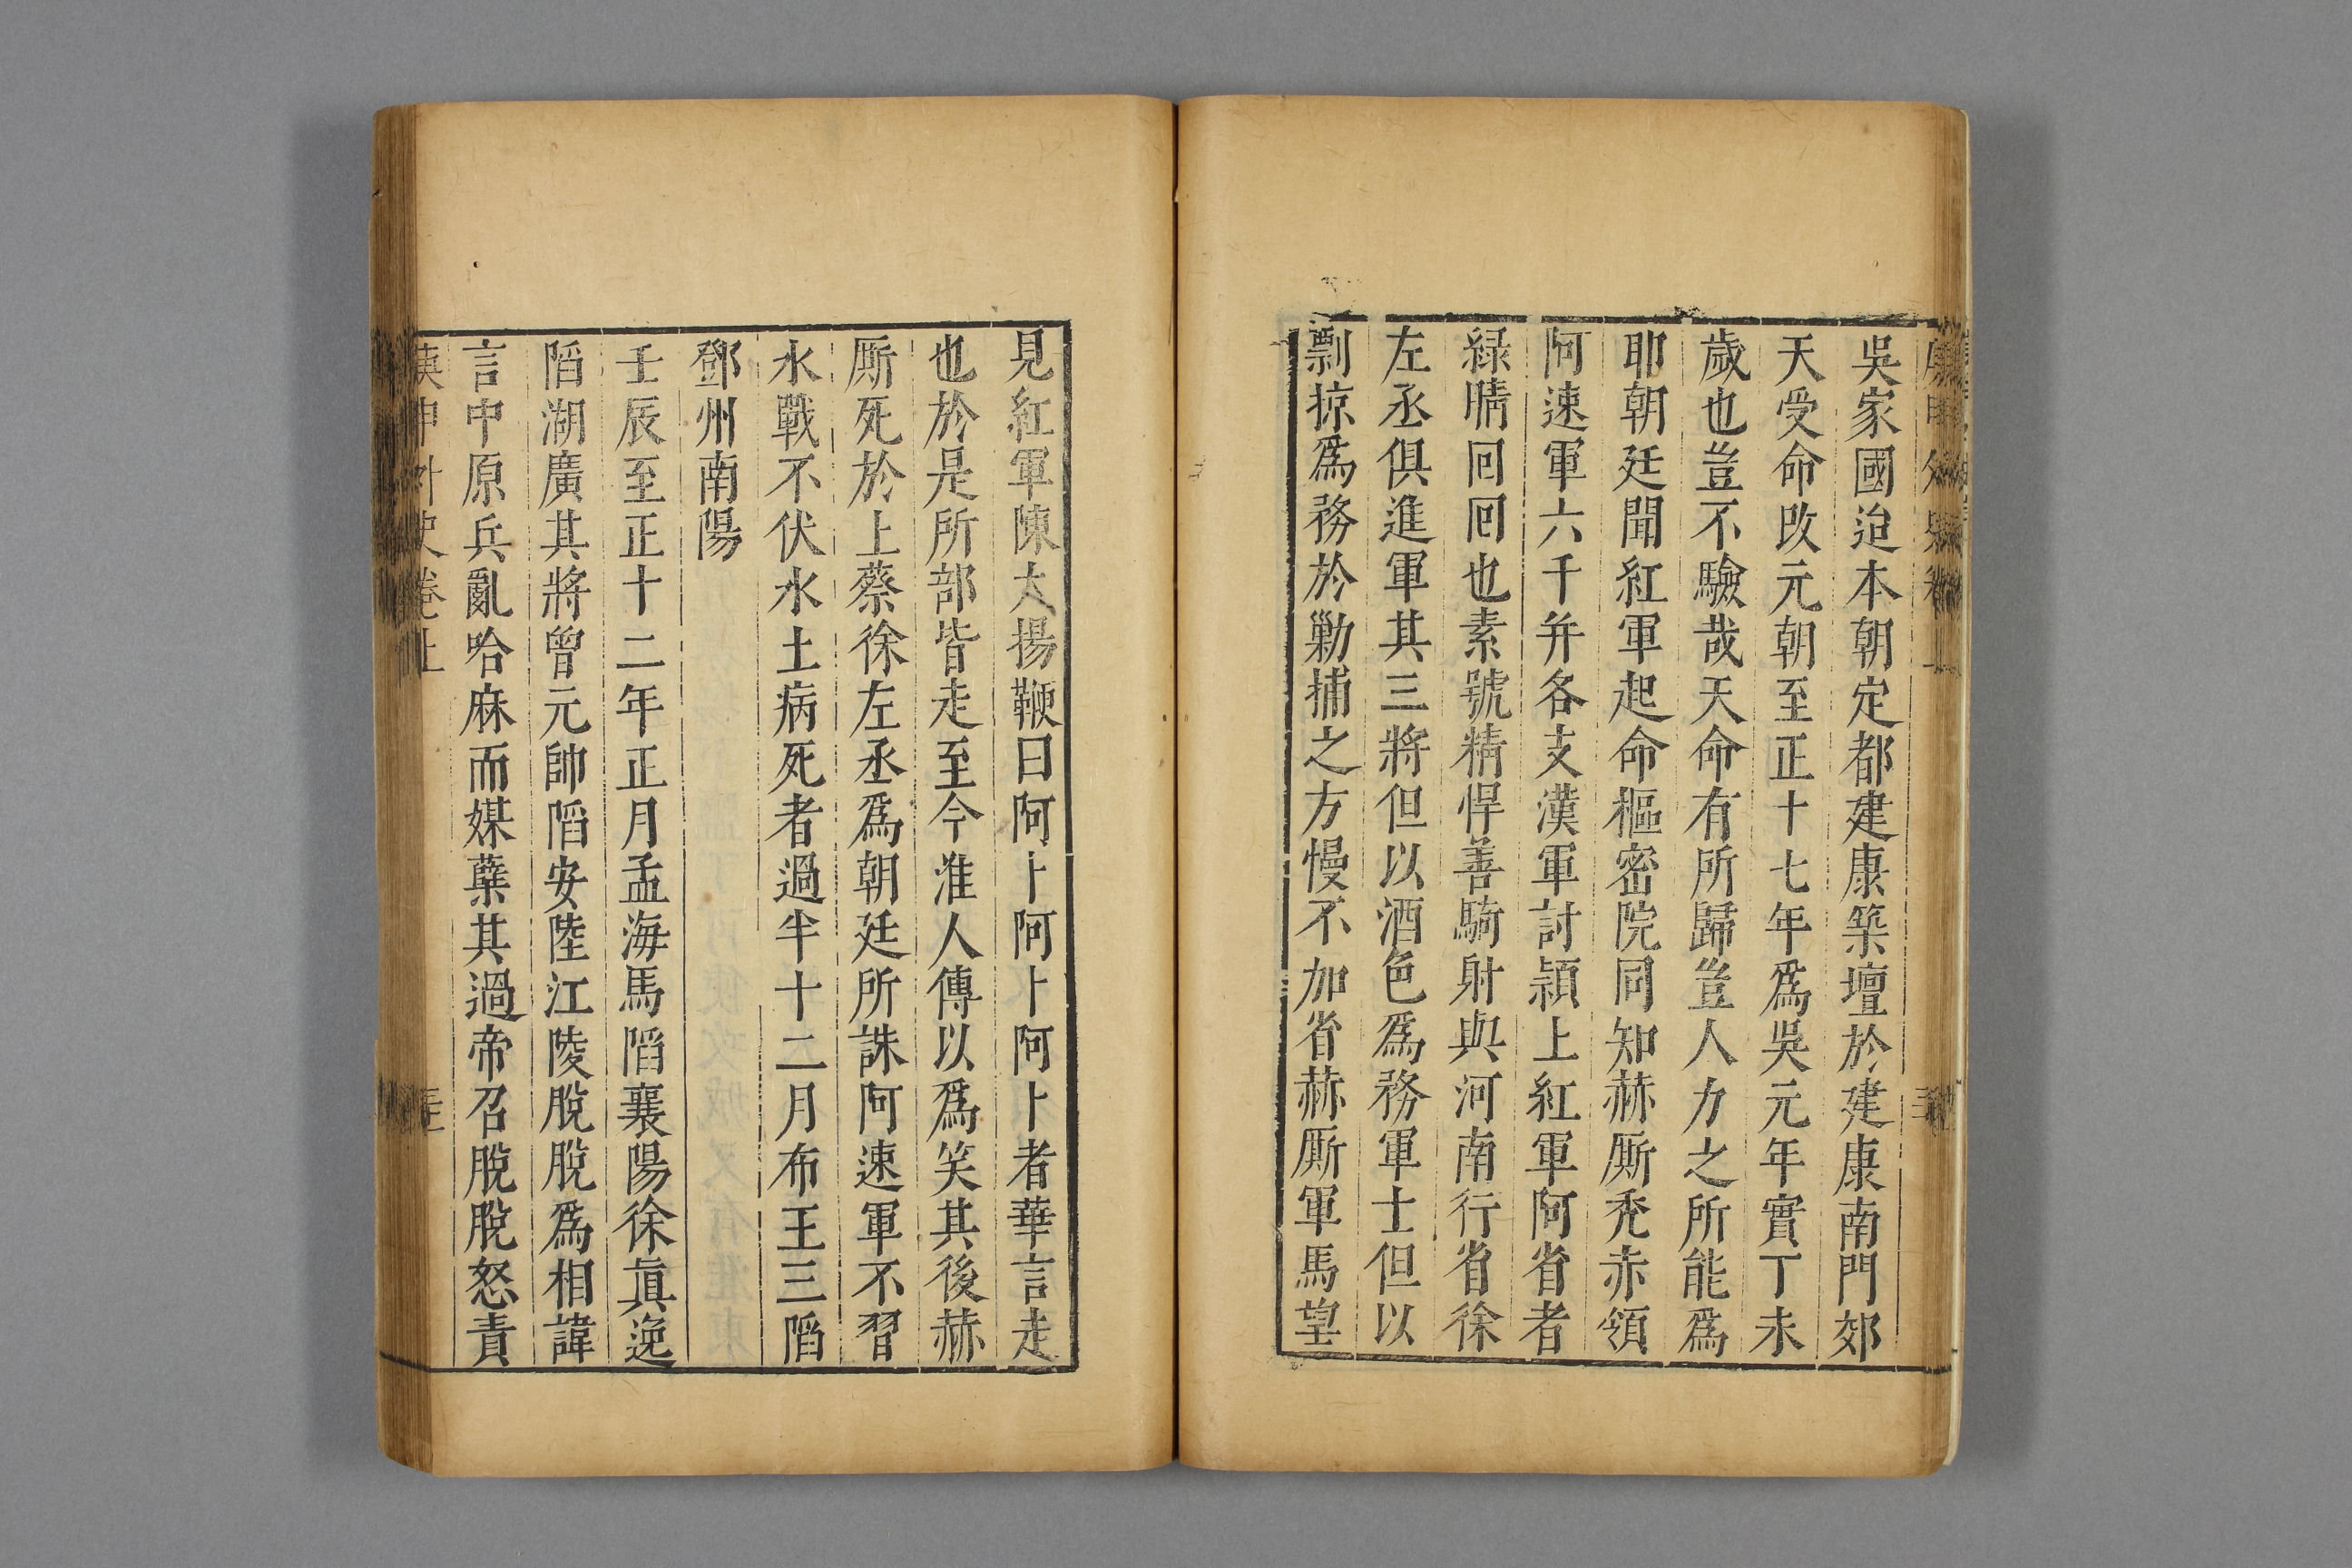 吳家國迨本朝定都建康築壇於建康南門郊
天受命改元朝至正十七年爲吳元年實丁未
歲也豈不驗哉天命有所歸豈人力之所能爲
耶朝廷聞紅軍起命樞密院同知赫厮禿赤領
阿速軍六千并各支漢軍討頴上紅軍阿省者
緑睛囘囘也素號精悍善騎射與河南行省徐
左丞俱進軍其三將但以酒色爲務軍士但以
剽掠爲務於勦捕之方慢不加省赫厮軍馬望
見紅軍陳大揚鞭曰阿卜阿卜阿卜者華言走
也於是所部皆走至今淮人傳以爲笑其後赫
厮死於上蔡徐左丞爲朝廷所誅阿速軍不習
水戰不伏水土病死者過半十二月布王三䧟
鄧州南陽
壬辰至正十二年正月孟海馬䧟襄陽徐眞逸
䧟湖廣其將曾元帥䧟安陸江陵脫脫爲相諱
言中原兵亂哈麻而媒蘖其過帝召脫脫怒責
庚申外史卷上